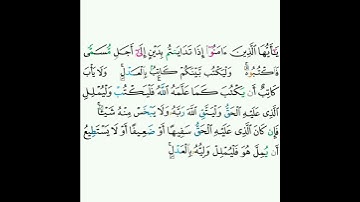 يَٰٓأَيُّهَا ٱلَّذِينَ ءَامَنُوٓا۟ إِذَا تَدَايَنتُم بِدَيْنٍ إِلَىٰٓ أَجَلٍ مُّسَمًّى
فَٱكْتُبُوهُ ۚ وَلْيَكْتُب بَّيْنَكُمْ كَاتِبٌۢ بِٱلْعَدْلِ ۚ وَلَا يَأْبَ
كَاتِبٌ أَن يَكْتُبَ كَمَا عَلَّمَهُ ٱللَّهُ ۚ فَلْيَكْتُبْ وَلْيُمْلِلِ
ٱلَّذِى عَلَيْهِ ٱلْحَقُّ وَلْيَتَّقِ ٱللَّهَ رَبَّهُۥ وَلَا يَبْخَسْ مِنْهُ شَيْـًٔا ۚ
فَإِن كَانَ ٱلَّذِى عَلَيْهِ ٱلْحَقُّ سَفِيهًا أَوْ ضَعِيفًا أَوْ لَا يَسْتَطِيعُ
أَن يُمِلَّ هُوَ فَلْيُمْلِلْ وَلِيُّهُۥ بِٱلْعَدْلِ ۚ